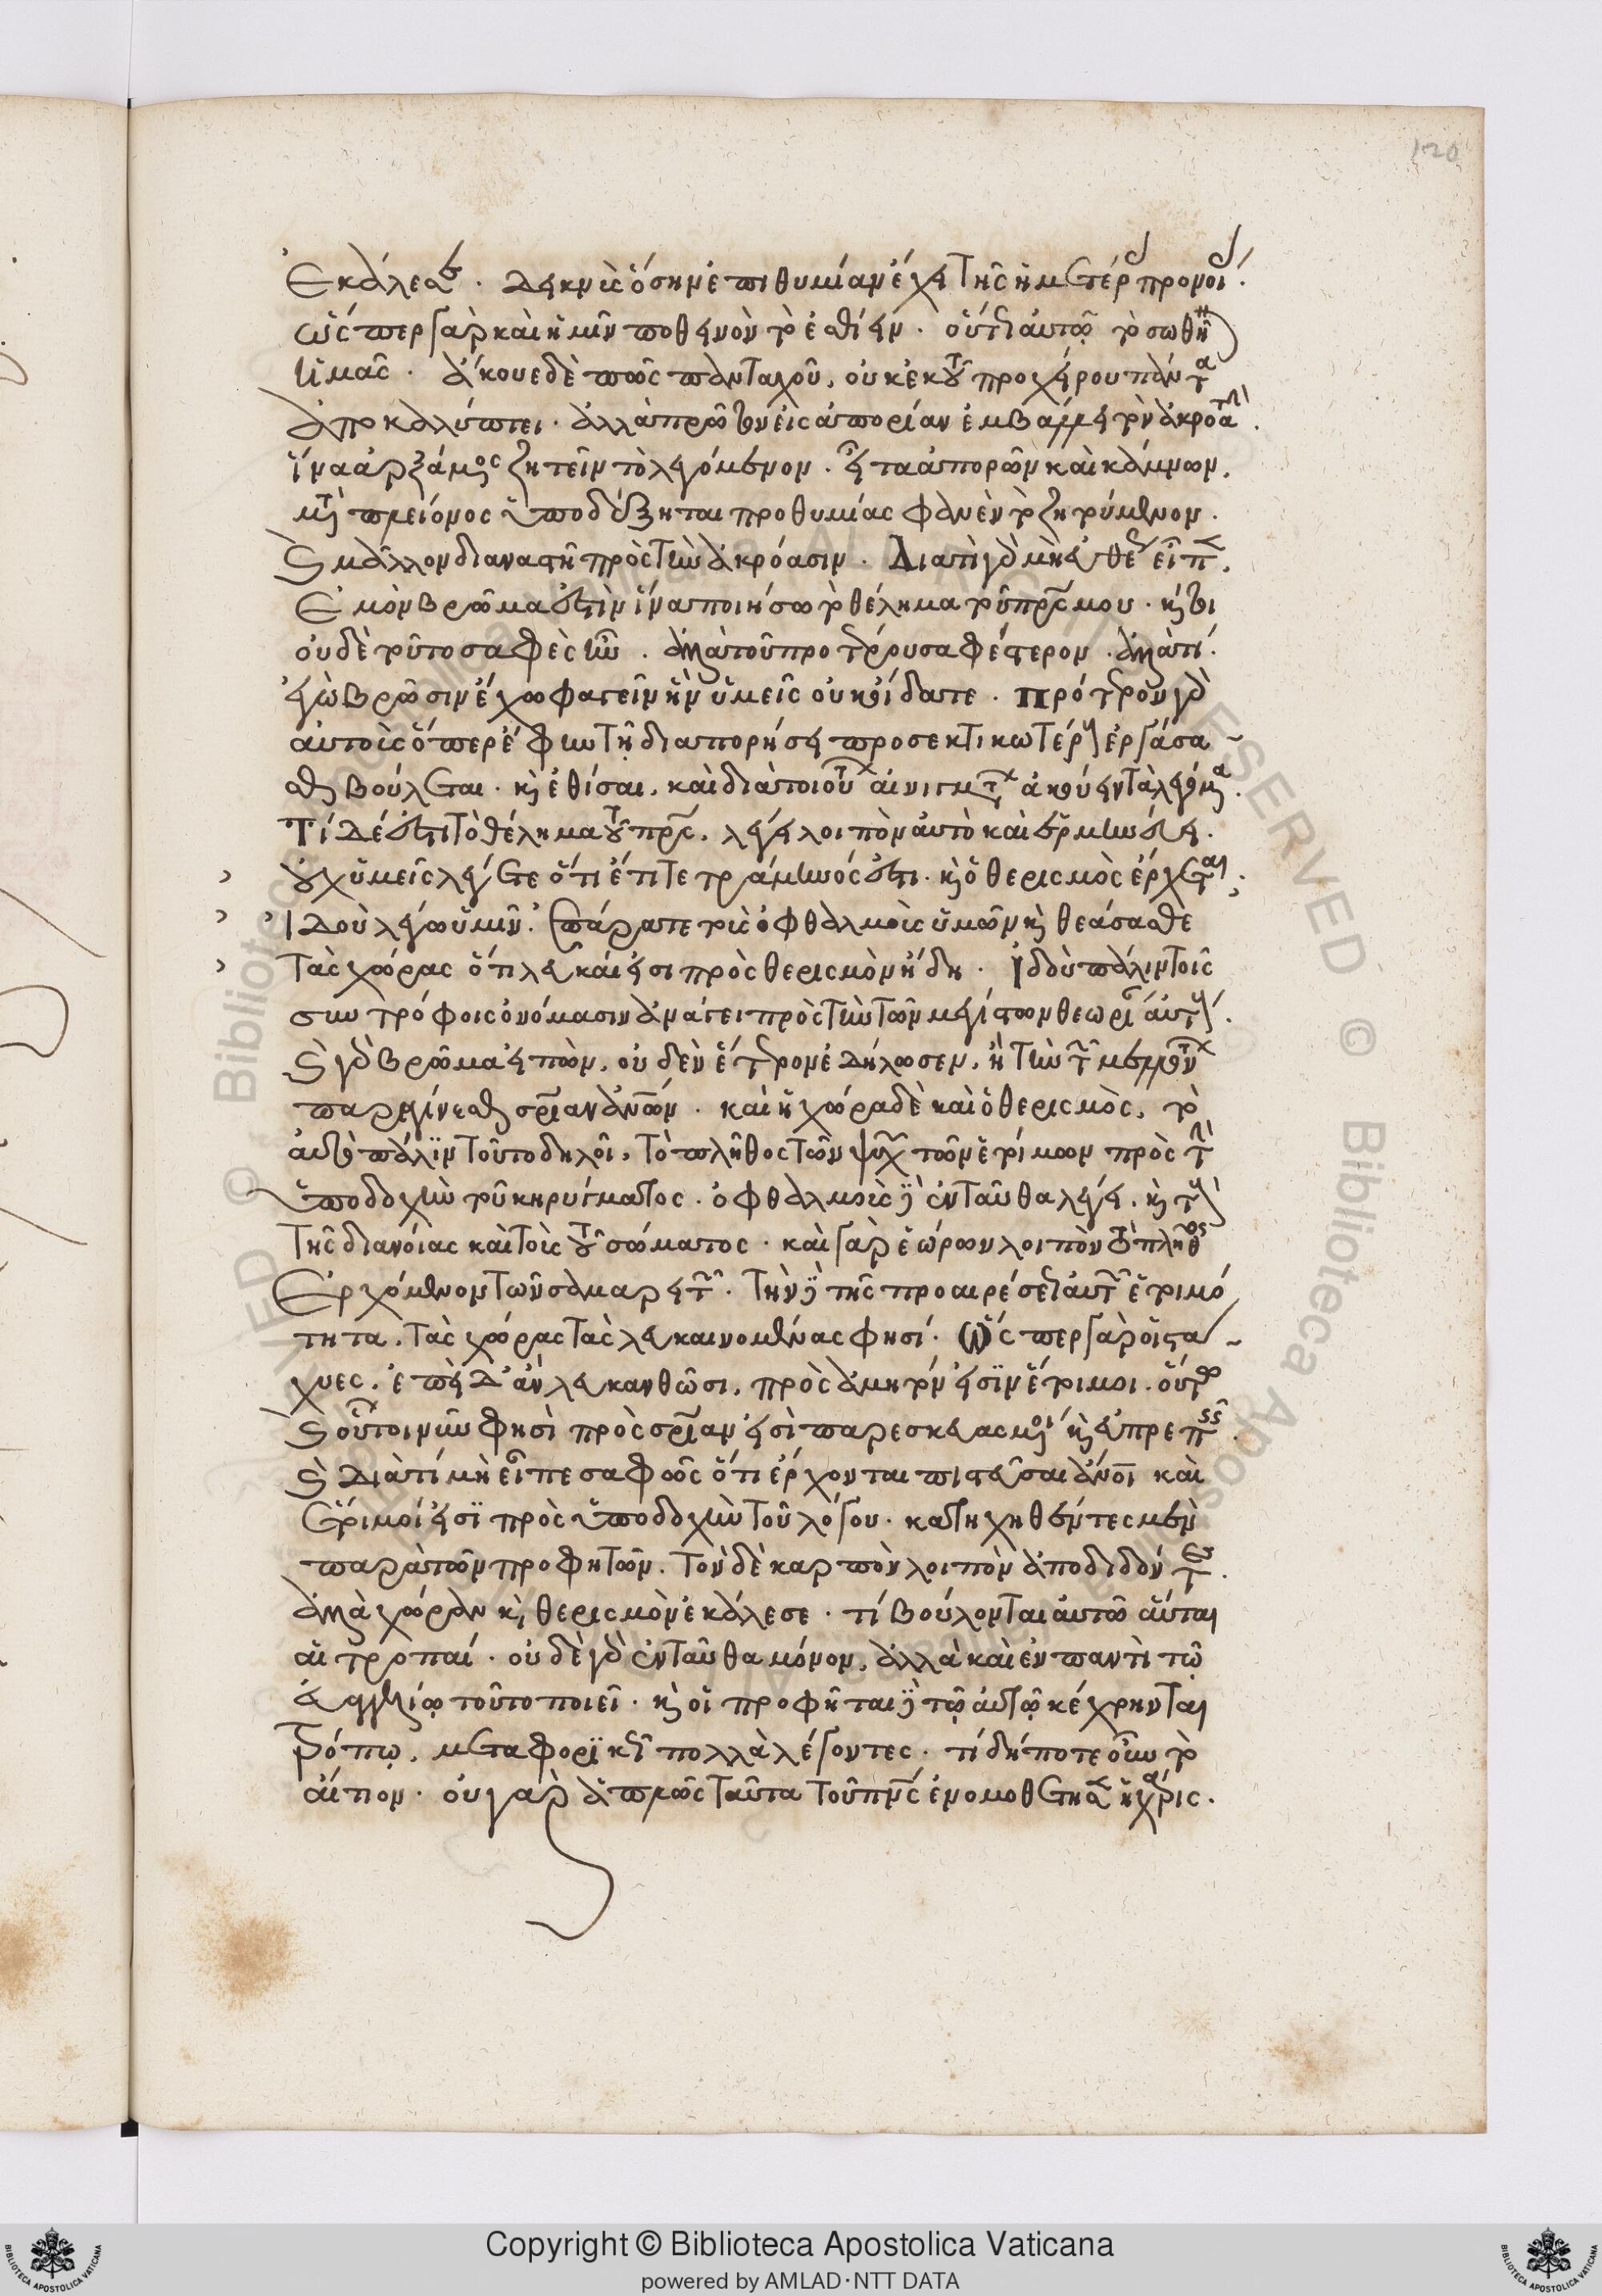 ἐκάλεσεν. δεικνὺς ὅσην ἐπιθυμίαν ἔχει τῆς ἡμετέρας προνοίας.
ὥσπερ γὰρ καὶ ἡμῖν ποθεινὸν τὸ ἐσθίειν. οὕτως αὐτῷ τὸ σωθῆναι
ἡμᾶς. ἄκουε δὲ πῶς πανταχοῦ, οὐκ ἐκ τοῦ προχείρου πάντα
ἀποκαλύπτει. ἀλλὰ πρῶτον εἰς ἀπορίαν ἐμβάλλει τὸν ἀκροατήν.
ἵνα ἀρξάμενος ζητεῖν τὸ λεγόμενον. εἶτα ἀπορῶν καὶ κάμνων,
μετὰ πλείονος ὑποδέξηται προθυμίας φανὲν τὸ ζητούμενον.
καὶ μᾶλλον διαναστῇ πρὸς τὴν ἀκρόασιν. Διατί γὰρ μὴ εὐθέως εἶπεν,
ἐμὸν βρῶμα ἐστὶν ἵνα ποιήσω τὸ θέλημα τοῦ πατρός μου. καίτοι
οὐδὲ τοῦτο σαφὲς ἦν. ἀλλὰ τοῦ προτέρου σαφέστερον. ἀλλὰ τί.
ἐγὼ βρῶσιν ἔχω φαγεῖν ἣν ὑμεῖς οὐκ οἴδατε. πρότερον γὰρ
αὐτοὺς ὅπερ ἔφην τῇ διαπορήσει προσεκτικωτέρους ἐργάσα-
σθαι βούλεται. καὶ ἐθίσαι, καὶ διὰ τοιούτων αἰνιγμάτων ἀκούειν τὰ λεγόμενα.
Τί δέ ἐστι τὸ θέλημα τοῦ πατρός, λέγει λοιπὸν αὐτὸ καὶ ἑρμηνεύει.
οὐχ ὑμεῖς λέγετε ὅτι ἔτι τετράμηνός ἐστι. καὶ ὁ θερισμὸς ἔρχεται.
ἰδοὺ λέγω ὑμῖν. ἐπάρατε τοὺς ὀφθαλμοὺς ὑμῶν καὶ θεάσασθε
τὰς χώρας ὅτι λευκαί εἰσι πρὸς θερισμὸν ἤδη. Ἰδοὺ πάλιν τοῖς
συντρόφοις ὀνόμασιν ἀνάγει πρὸς τὴν τῶν μεγίστων θεωρίαν αὐτούς.
καὶ γὰρ βρῶμα εἰπὼν, οὐδὲν ἕτερον ἐδήλωσεν, ἢ τὴν τῶν μελλόντων
παραγίνεσθαι σωτηρίαν ἀνθρώπων. καὶ ἡ χώρα δὲ καὶ ὁ θερισμὸς, τὸ
αὐτὸ πάλιν τοῦτο δηλοῖ, τὸ πλῆθος τῶν ψυχῶν τῶν ἑτοίμων πρὸς τὴν
ὑποδοχὴν τοῦ κηρύγματος. ὀφθαλμοὺς δὲ ἐνταῦθα λέγει, καὶ τοὺς
τῆς διανοίας καὶ τοὺς τοῦ σώματος. καὶ γὰρ ἑώρων λοιπὸν τὸ πλῆθος
ἐρχόμενον τῶν σαμαρειτῶν. τὴν δὲ τῆς προαιρέσεως αὐτῶν ἑτοιμό
τητα, τὰς χώρας τὰς λευκαινομένας φησί. Ὥσπερ γὰρ οἱ στά-
χυες, ἐπειδ' ἂν λευκανθῶσι, πρὸς ἀμητόν εἰσιν ἕτοιμοι. οὕτω
καὶ οὗτοι νῦν φησὶ πρὸς σωτηρίαν εἰσὶ παρεσκευασμένοι καὶ εὐτρεπεῖς.
καὶ διατί μὴ εἶπε σαφῶς ὅτι ἔρχονται πιστεῦσαι ἄνθρωποι καὶ
ἕτοιμοί εἰσι πρὸς ὑποδοχὴν τοῦ λόγου. κατηχηθέντες μὲν
παρὰ τῶν προφητῶν. τὸν δὲ καρπὸν λοιπὸν ἀποδιδόντες.
ἀλλὰ χώραν καὶ θερισμὸν ἐκάλεσε. τί βούλονται αὐτῷ αὗται
αἱ τροπαί. οὐδὲ γὰρ ἐνταῦθα μόνον, ἀλλὰ καὶ ἐν παντὶ τῷ
εὐαγγελίῳ τοῦτο ποιεῖ. καὶ οἱ προφῆται δὲ τῷ αὐτῷ κέχρηνται
τρόπῳ, μεταφορικῶς πολλὰ λέγοντες. τί δήποτε οὖν τὸ
αἴτιον. οὐ γὰρ ἁπλῶς ταῦτα τοῦ πνεύματος ἐνομοθέτησεν ἡ χάρις.
120